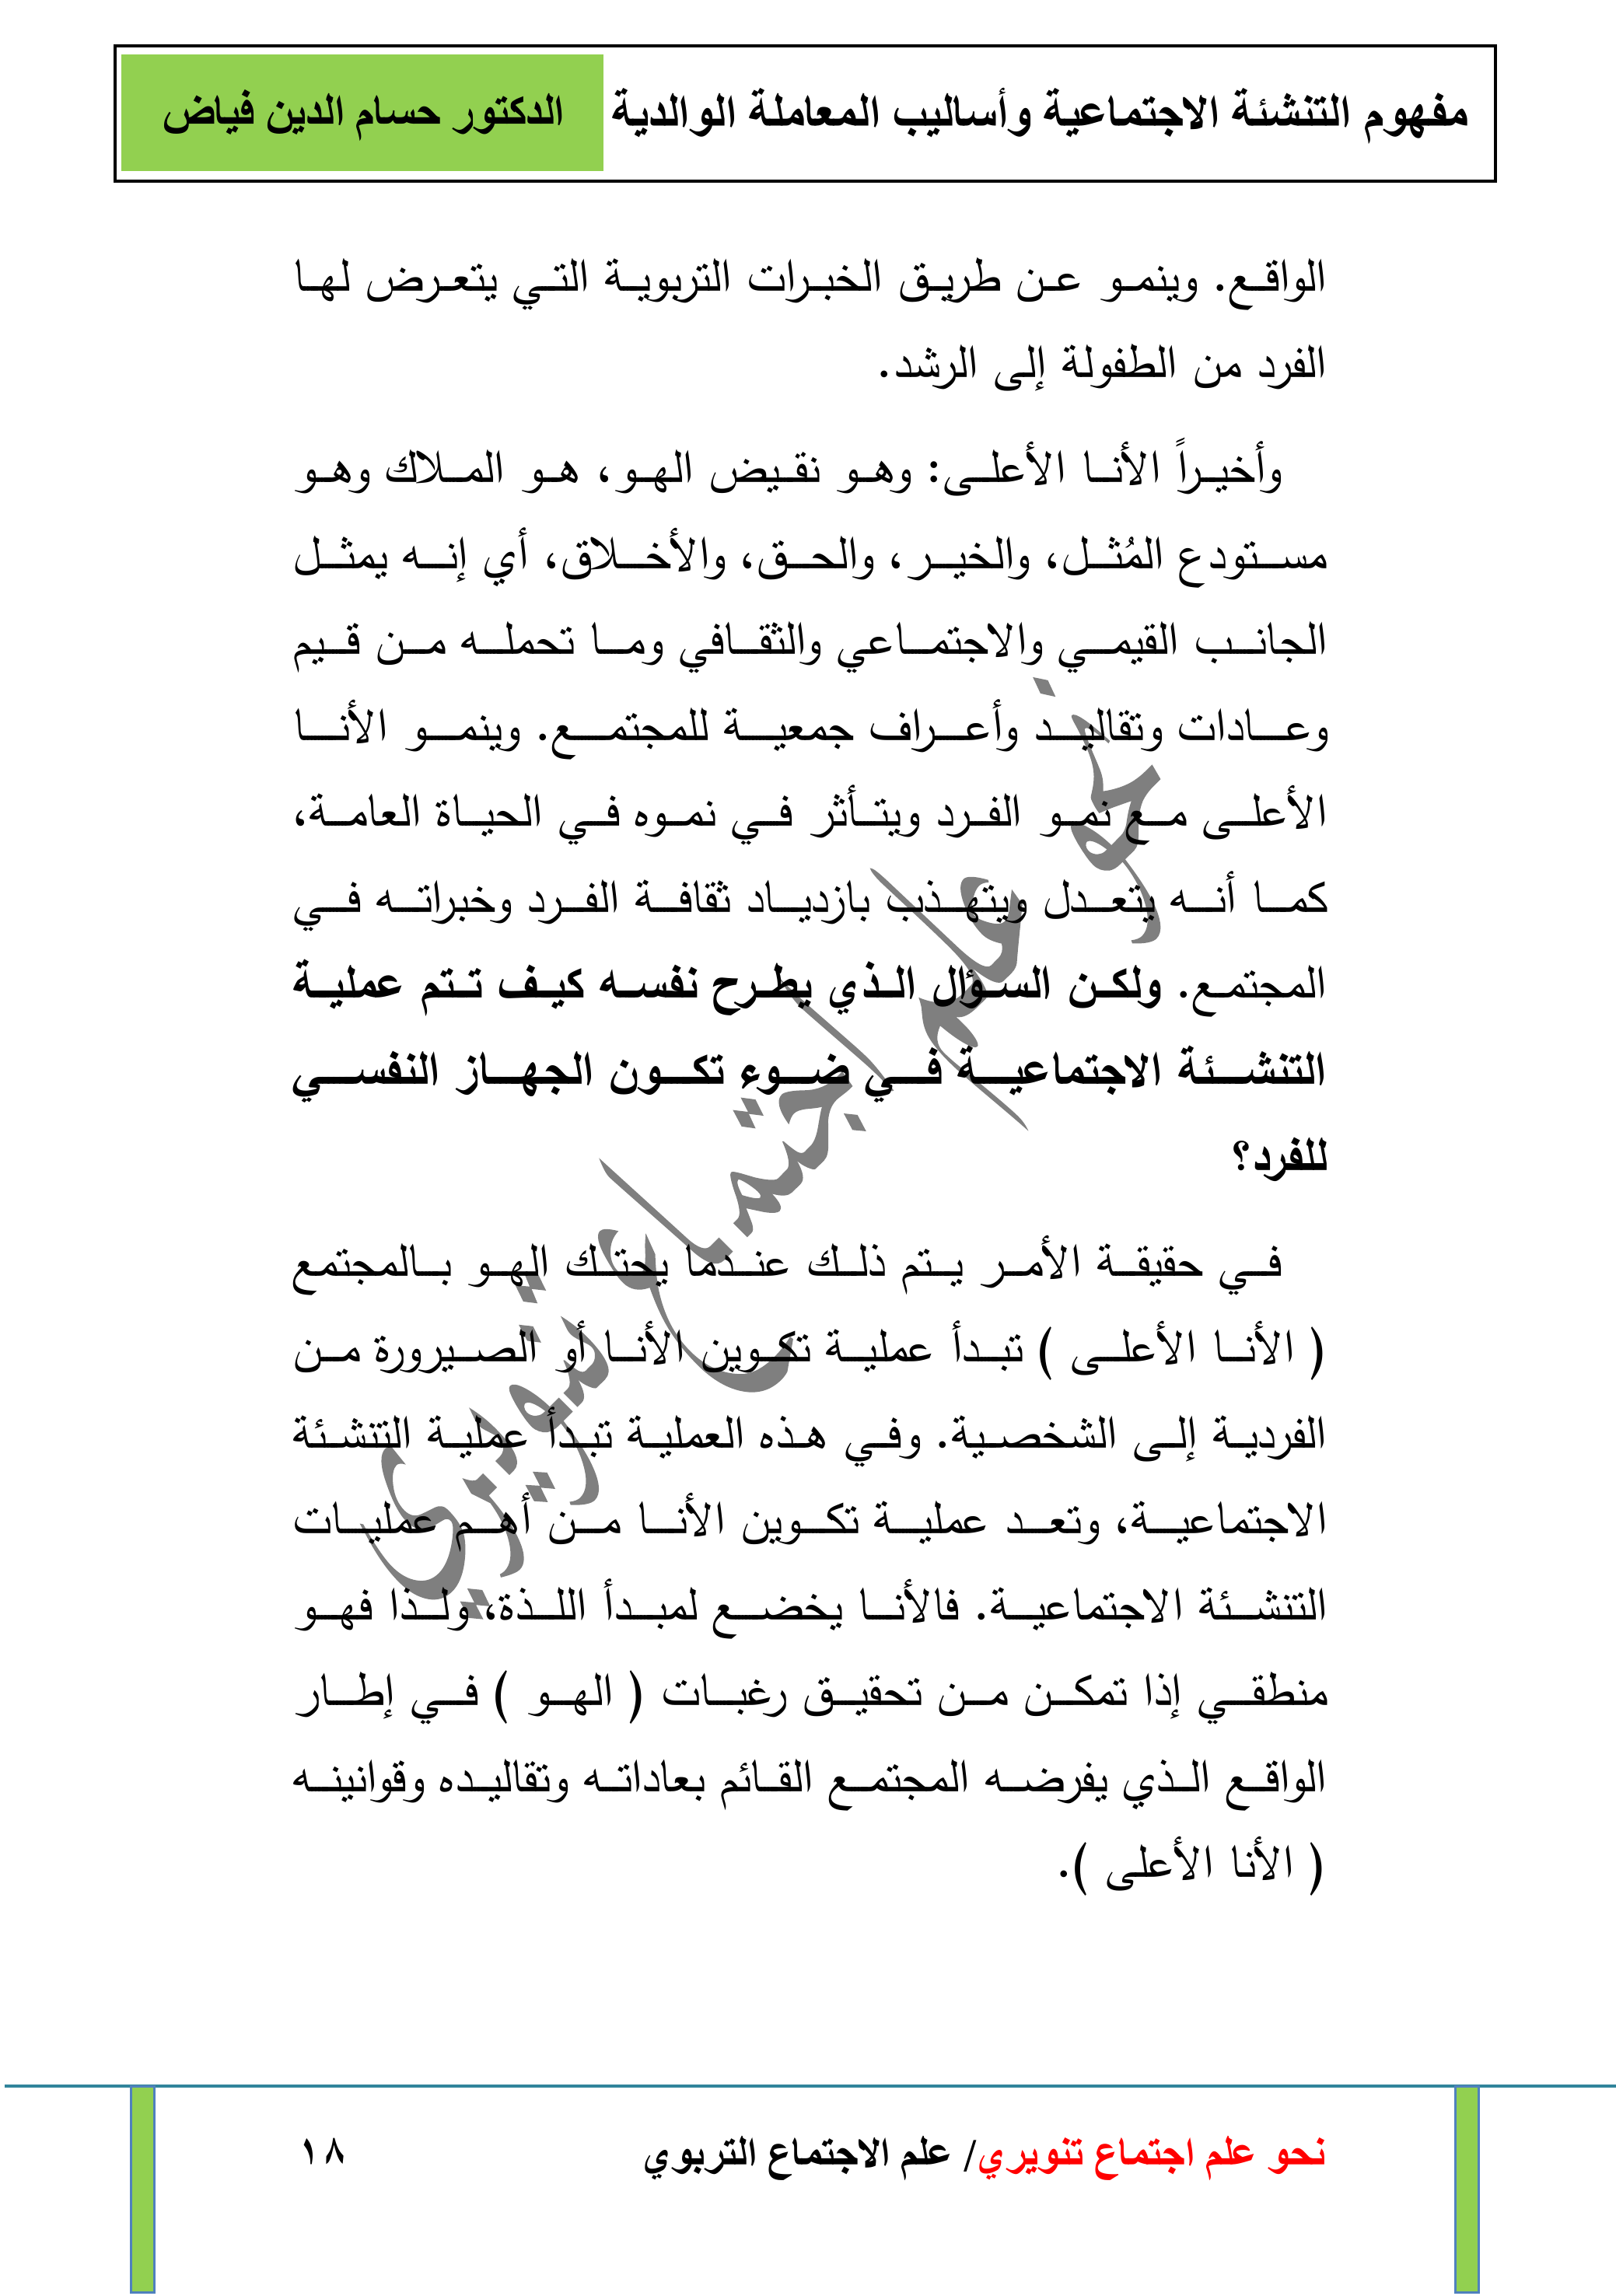 مفهوم التنشئة الاجتماعية وأساليب المعاملة الوالدية الدكتور حسام الدين فياض
الواقع. وينمو عن طريق الخبرات التربوية التي يتعرض لها
الفرد من الطفولة إلى الرشد.
وأخيراً الأنا الأعلى: وهو نقيض الهو، هو الملاك وهو
مستودع المُثل، والخير، والحق، والأخلاق، أي إنه يمثل
الجانب القيمي والاجتماعي والثقافي وما تحمله من قيم
وعادات وتقاليد وأعراف جمعية للمجتمع. وينمو الأنا
الأعلى مع نمو الفرد ويتأثر في نموه في الحياة العامة،
كما أنه يتعدل ويتهذب بازدياد ثقافة الفرد وخبراته في
المجتمع. ولكن السؤال الذي يطرح نفسه كيف تتم عملية
التنشئة الاجتماعية في ضوء تكون الجهاز النفسي
للفرد؟
في حقيقة الأمر يتم ذلك عندما يحتك الهو بالمجتمع
( الأنا الأعلى ) تبدأ عملية تكوين الأنا أو الصيرورة من
الفردية إلى الشخصية. وفي هذه العملية تبدأ عملية التنشئة
الاجتماعية، وتعد عملية تكوين الأنا من أهم عمليات
التنشئة الاجتماعية. فالأنا يخضع لمبدأ اللذة، ولذا فهو
منطقي إذا تمكن من تحقيق رغبات ( الهو ) في إطار
الواقع الذي يفرضه المجتمع القائم بعاداته وتقاليده وقوانينه
( الأنا الأعلى ).
نحو علم اجتماع تنويري
نحو علم اجتماع تنويري/ علم الاجتماع التربوي ١٨